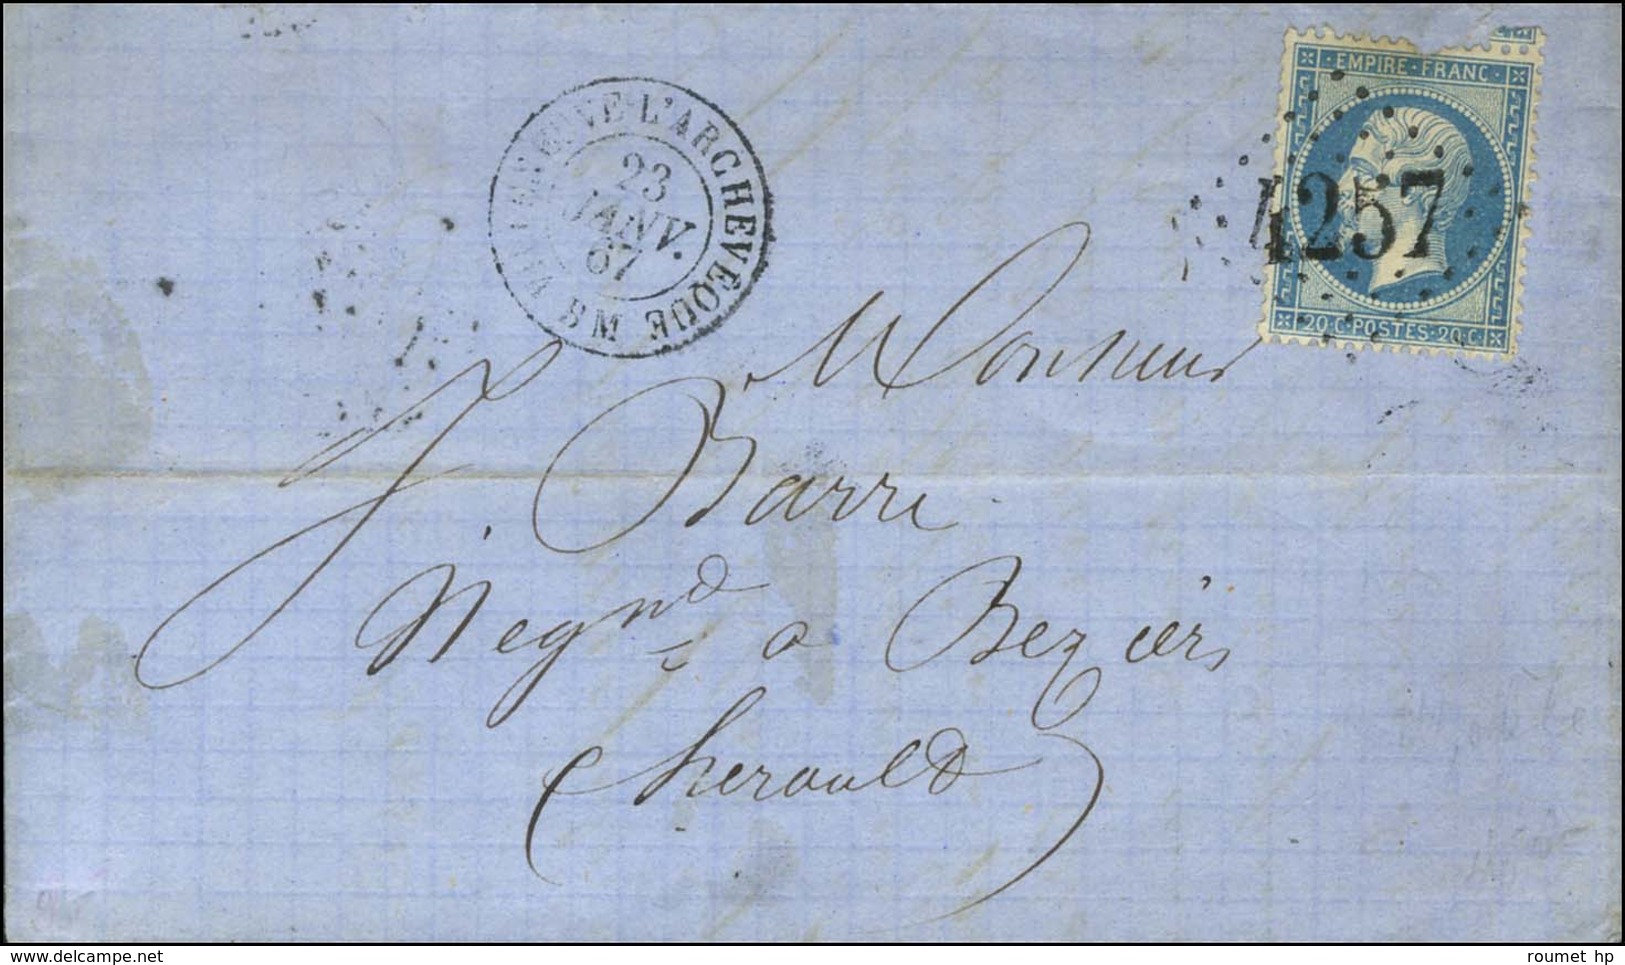 VILLENEUVE-L'ARCHEVÊQUE
23
JANV.
67
B M
EMPIRE · FRANC ·
4257
20 · C · POSTES · 20 C ·
Monsieur
J. Barre
Negnd à Beziers
herault
delcampe.net
roumet hp